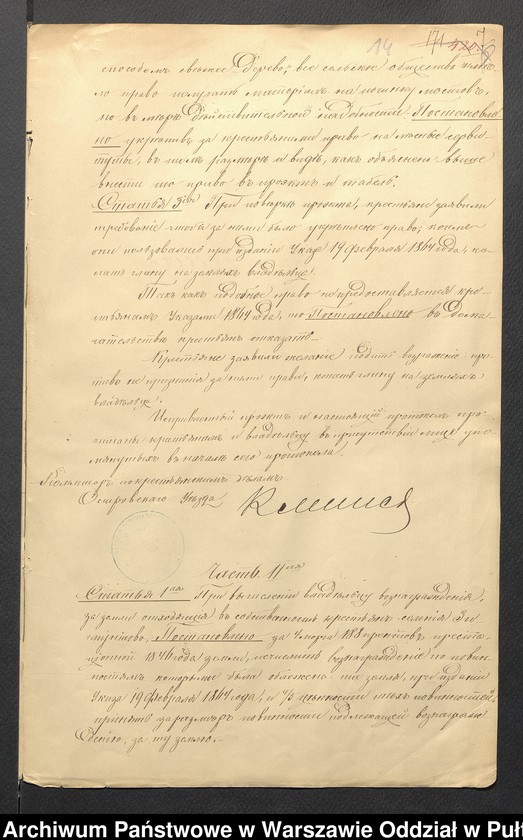 14 171
способомъ свѣжее Дерево, все сельское общество имѣ-
ло право получать матеріалъ на починку мостовъ,
но въ мѣрѣ Дѣйствительной надобности Постановле-
но укрѣпить за крестьянами право на лѣсные серви-
туты, въ томъ размѣрѣ и видѣ, какъ объяснено выше
внести это право въ проэктъ и табель.
Статья 3ая При повѣркѣ проэкта, крестьяне заявили
требованіе чтобъ за ними было укрѣплено право, коимъ
они пользовались при изданіи Указа 19 февраля 1864 года, ко-
пать глину на земляхъ владѣльца.
Такъ какъ подобное право не предоставляется кре-
стьянамъ Указами 1864 года, то Постановлено въ Дома-
гательствѣ крестьянъ отказать.
Крестьяне заявили желаніе подать возраженіе про-
тивъ не признанія за ними права, копать глину на земляхъ
владѣльца.
Исправленный проэктъ и настоящій протоколъ про-
читаны крестьянамъ и владѣльцу въ присутствіи лицъ упо-
мянутыхъ въ началѣ сего протокола.
по крестьянскимъ дѣламъ
Островскаго Уѣзда
Часть IIая
Статья 1ая При вычисленіи владѣльцу вознагражденія,
за земли отходящія въ собственность крестьянъ селенія
Постановлено за 4 морга 188 прентовъ
1846 года земли, исчислить вознагражденіе по повин-
ностямъ которыми была обложена та земля, при изданіи
Указа 19 февраля 1864 года, и цѣнности этихъ повинностей,
принять за размѣръ повинности подлежащей вознаграж-
денію, за ту землю.
Archiwum Państwowe w Warszawie Oddział w Puł